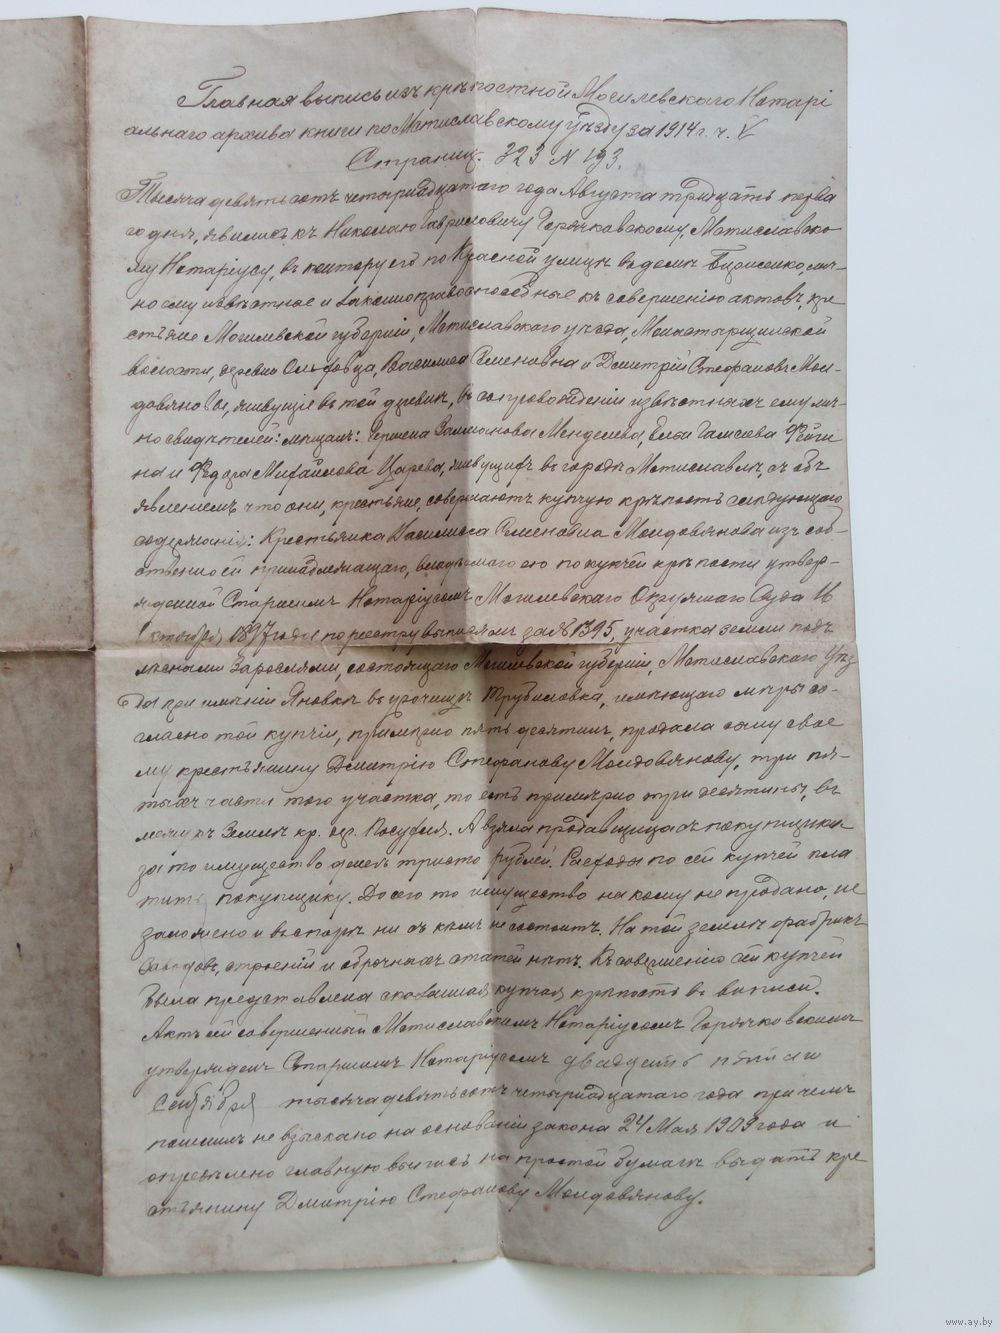 Главная выпись изъ крѣпостной Могилевскаго Нотарі
альнаго архива книги по Мстиславскому уѣзду за 1914 г. ч. V
Страниц. 323 N 193.
Тысяча девятьсотъ четырнадцатаго года Августа тридцать перва
го дня, явились къ Николаю Гавриловичу Горячковскому, Мстиславско-
му Нотаріусу, въ контору его по Красной улицѣ въ домѣ лич-
но ему извѣстные и законно правоспособные къ совершенію актовъ, кре
стьяне Могилевской губерніи, Мстиславскаго уѣзда, Монастырщинской
волости, деревни Василиса Семеновна и Дмитрій Стефановъ Мол-
довяновы, живущіе въ той деревнѣ, въ сопровожденіи извѣстныхъ ему лич-
но свидѣтелей: мѣщанъ: Залманова Менделева, Фейги
на и Федора Михайлова Царева, живущихъ въ городѣ Мстиславлѣ, съ объ
явленіемъ что они, крестьяне, совершаютъ купчую крѣпость слѣдующаго
содержанія: Крестьянка Василиса Семеновна Молдовянова изъ соб-
ственно ей принадлежащаго, владѣемаго ею по купчей крѣпости утвер-
жденной Старшимъ Нотаріусомъ Могилевскаго Окружнаго Суда 16
Октября 1897 года по реестру выписямъ за № 1395, участка земли подъ
лѣсными зарослями, состоящаго Могилевской губерніи, Мстиславскаго Уѣз
да при имѣніи Яновкѣ въ урочищѣ Трубиловка, имѣющаго мѣры со-
гласно той купчіи, примѣрно пять десятинъ, продала сему свое
му крестьянину Дмитрію Стефанову Молдовянову, три пя-
тыхъ части того участка, то есть примѣрно три десятины, въ
межѣ къ землѣ кр. дер. А взяла продавщица съ покупщика
за то имущество денегъ триста рублей. Расходы по сей купчей пла
тить покупщику. До сего то имущество никому не продано, не
заложено и въ спорѣ ни съ кѣмъ не состоитъ. На той землѣ фабрикъ
заводовъ, строеній и оброчныхъ статей нѣтъ. Къ совершенію сей купчей
была представлена сказанная купчая крѣпость въ выписи.
Актъ сей совершенный Мстиславскимъ Нотаріусомъ Горячковскимъ
утвержденъ Старшимъ Нотаріусомъ двадцать пятаго
Сентября тысяча девятьсотъ четырнадцатаго года при чемъ
пошлинъ не взыскано на основаніи закона 24 Мая 1909 года и
опредѣлено главную выпись на простой бумагѣ выдать кре
стьянину Дмитрію Стефанову Молдовянову.
www.ay.by